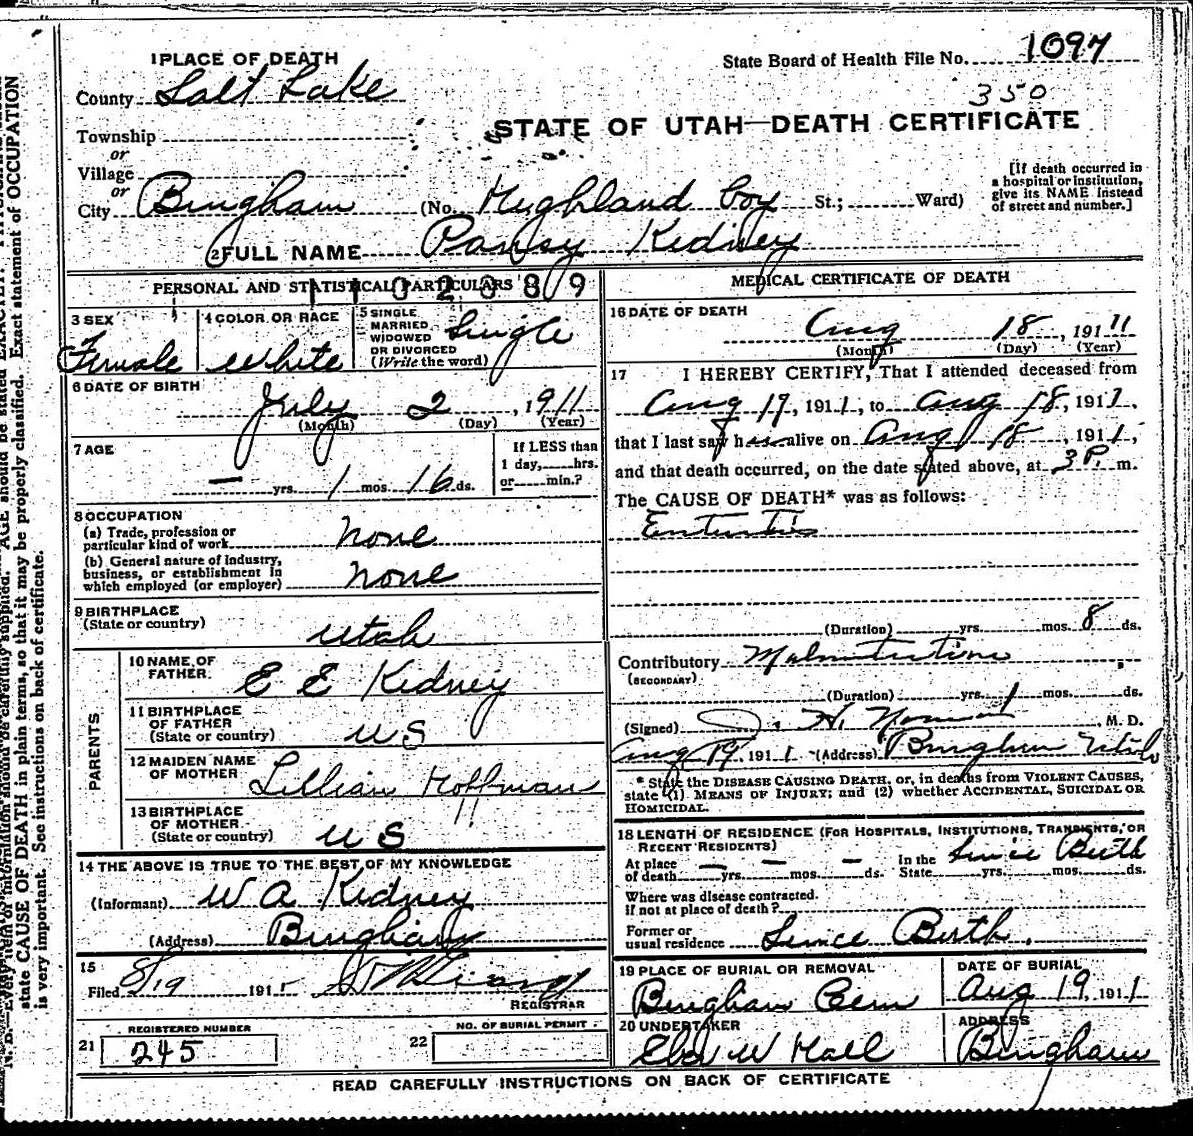 1 PLACE OF DEATH
State Board of Health File No. 1097
County Salt Lake
350
STATE OF UTAH—DEATH CERTIFICATE
Township
or
Village
or
City Bingham (No. Highland boy St.; Ward)
[If death occurred in a hospital or institution, give its NAME instead of street and number.]
2 FULL NAME Pansy Kidney
PERSONAL AND STATISTICAL PARTICULARS
MEDICAL CERTIFICATE OF DEATH
3 SEX Female
4 COLOR OR RACE White
5 SINGLE, MARRIED, WIDOWED OR DIVORCED (Write the word) Single
6 DATE OF BIRTH
July 2, 1911
(Month) (Day) (Year)
7 AGE
— yrs. 1 mos. 16 ds.
If LESS than 1 day, hrs. or min.?
8 OCCUPATION
(a) Trade, profession or particular kind of work none
(b) General nature of industry, business, or establishment in which employed (or employer) none
9 BIRTHPLACE
(State or country) Utah
PARENTS
10 NAME OF FATHER E E Kidney
11 BIRTHPLACE OF FATHER (State or country) U S
12 MAIDEN NAME OF MOTHER Lillian Hoffman
13 BIRTHPLACE OF MOTHER (State or country) U S
14 THE ABOVE IS TRUE TO THE BEST OF MY KNOWLEDGE
(Informant) W A Kidney
(Address) Bingham
15
Filed 8/19 1911
REGISTRAR
21 REGISTERED NUMBER 245
22 NO. OF BURIAL PERMIT
16 DATE OF DEATH
Aug 18, 1911
(Month) (Day) (Year)
17 I HEREBY CERTIFY, That I attended deceased from
Aug 17, 1911, to Aug 18, 1911,
that I last saw her alive on Aug 18, 1911,
and that death occurred, on the date stated above, at 3 P. m.
The CAUSE OF DEATH* was as follows:
Enteritis
(Duration) yrs. mos. 8 ds.
Contributory Malnutrition
(SECONDARY)
(Duration) yrs. 1 mos. ds.
(Signed) H. M. D.
Aug 19, 1911 (Address) Bingham Utah
* State the DISEASE CAUSING DEATH, or, in deaths from VIOLENT CAUSES,
state (1) MEANS OF INJURY; and (2) whether ACCIDENTAL, SUICIDAL OR
HOMICIDAL.
18 LENGTH OF RESIDENCE (FOR HOSPITALS, INSTITUTIONS, TRANSIENTS, OR
RECENT RESIDENTS)
At place of death — yrs. — mos. — ds. In the State yrs. mos. ds. Since Birth
Where was disease contracted, if not at place of death?
Former or usual residence Since Birth.
19 PLACE OF BURIAL OR REMOVAL
Bingham Cem
DATE OF BURIAL
Aug 19, 1911
20 UNDERTAKER
W Hall
ADDRESS
Bingham
READ CAREFULLY INSTRUCTIONS ON BACK OF CERTIFICATE
AGE should be stated EXACTLY.
state CAUSE OF DEATH in plain terms, so that it may be properly classified. Exact statement of OCCUPATION
is very important. See instructions on back of certificate.